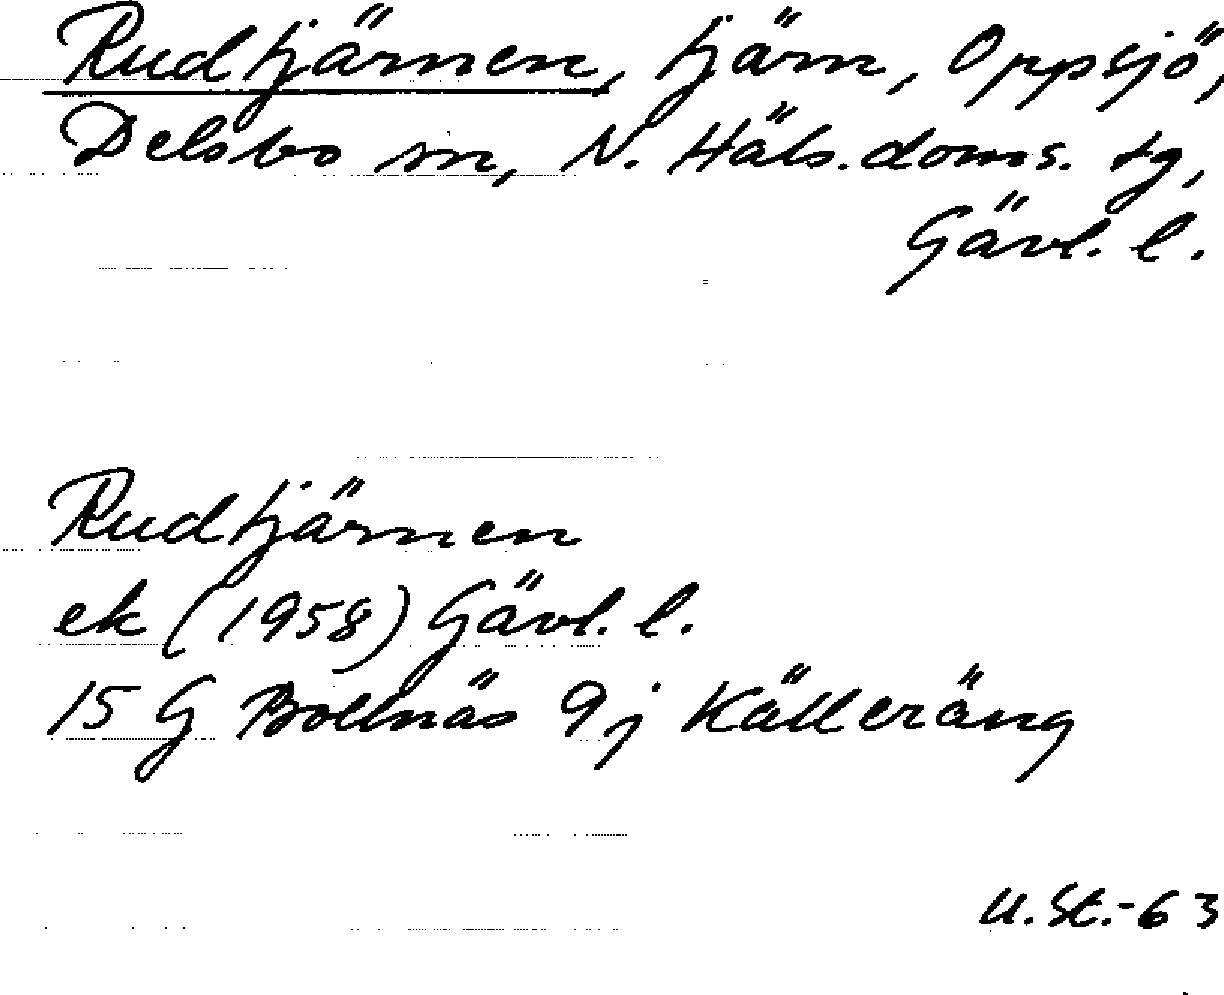 Rudtjärnen, tjärn, Oppsjö,
Delsbo sn, N. Häls. doms. tg,
Gävl. l.
Rudtjärnen
ek (1958) Gävl. l.
15 G Bollnäs 9j Källeräng
U.St.-63